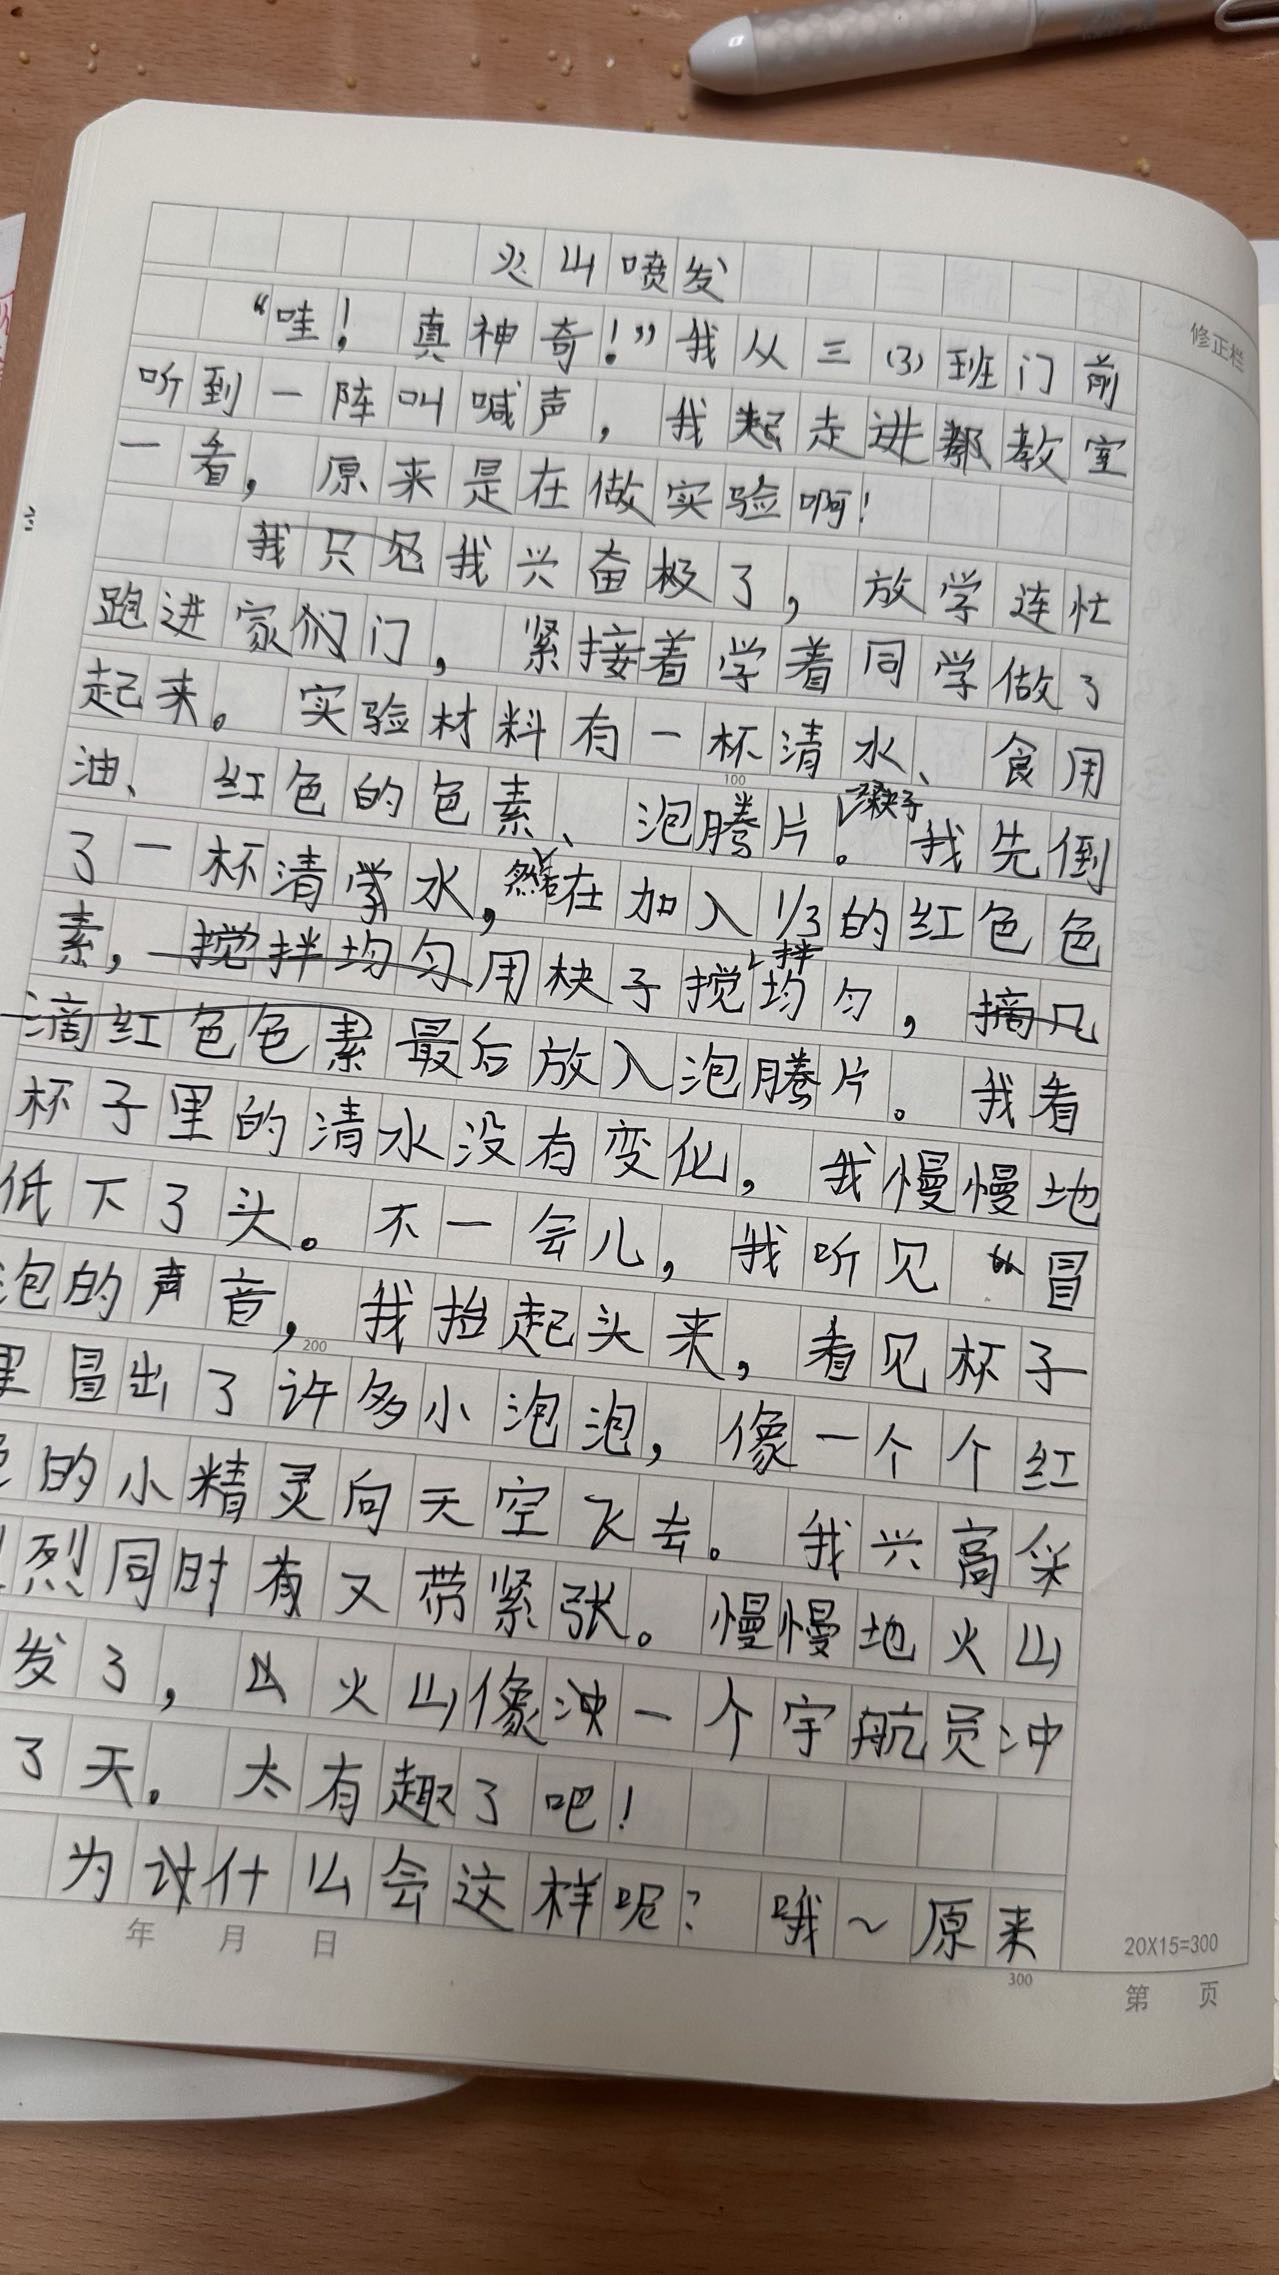 火山喷发
“哇！真神奇！”我从三(3)班门前
听到一阵叫喊声，我走进教室
一看，原来是在做实验啊！
我只见我兴奋极了，放学连忙
跑进家门，紧接着学着同学做了
起来。实验材料有一杯清水、食用
油、红色的色素、泡腾片。我先倒
筷子
了一杯清水，然后在加入1/3的红色色
素，搅拌均匀用筷子搅拌均匀，摘几
滴红色色素最后放入泡腾片。我看
杯子里的清水没有变化，我慢慢地
低下了头。不一会儿，我听见冒
泡的声音，我抬起头来，看见杯子
里冒出了许多小泡泡，像一个个红
色的小精灵向天空飞去。我兴高采
烈同时又带紧张。慢慢地火山
发了，火山像一个宇航员冲
了天。太有趣了吧！
为什么会这样呢？哦~原来
修正栏
100
200
300
年 月 日
20X15=300
第 页